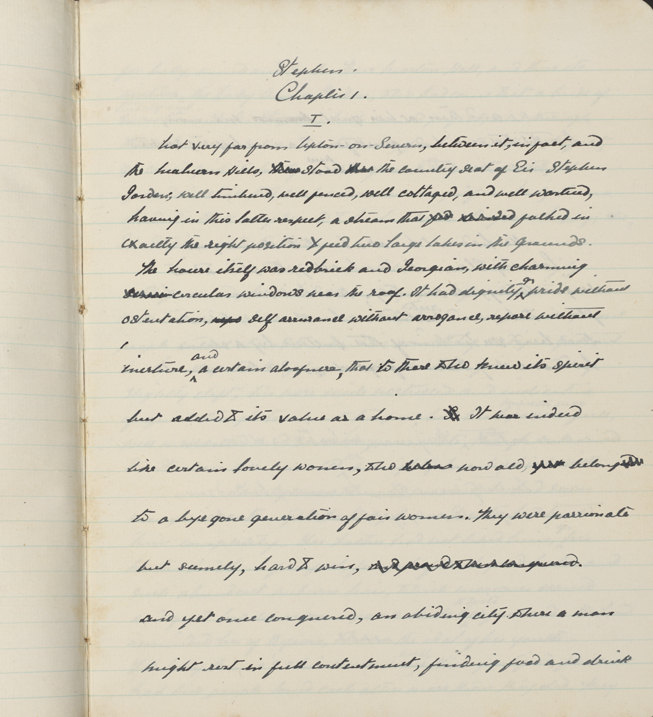 Stephen.
Chapter 1.
I.
Not very far from Upton-on-Severn, between it, in fact, and
the Malvern Hills, stood the country seat of Sir Stephen
Gordon, well timbered, well fenced, well cottaged, and well watered,
having in this latter respect, a stream that forked in
exactly the right position to feed two large lakes in the grounds.
The house itself was red brick and Georgian, with charming
circular windows near the roof. It had dignity & pride without
ostentation, self assurance without arrogance, repose without
inerture, and a certain aloofness, that to those who knew its spirit
but added to its value as a home. It was indeed
like certain lovely women, who now old belong
to a bye gone generation of fair women. They were passionate
but seemly, hard to win,
and yet once conquered, an abiding city where a man
might rest in full contentment, finding food and drink